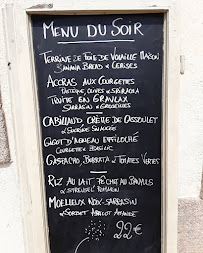 MENU DU SOIR
TERRINE DE FOIE DE VOLAILLE MAISON
BANANA BREAD & CERISES
ACCRAS AUX COURGETTES
OLIVES & SRIRACHA
TRUITE EN GRAVLAX
SARRASIN & GROSEILLES
CABILLAUD, CRÈTE DE
GIGOT D'AGNEAU EFFILOCHÉ
COURGETTE &
GASPACHO, BURRATA & TOMATES VERTES
RIZ AU LAIT, PÊCHE AU BANYULS
&
MOELLEUX NOIX-SARRASIN
& SORBET ABRICOT AMANDE
22€